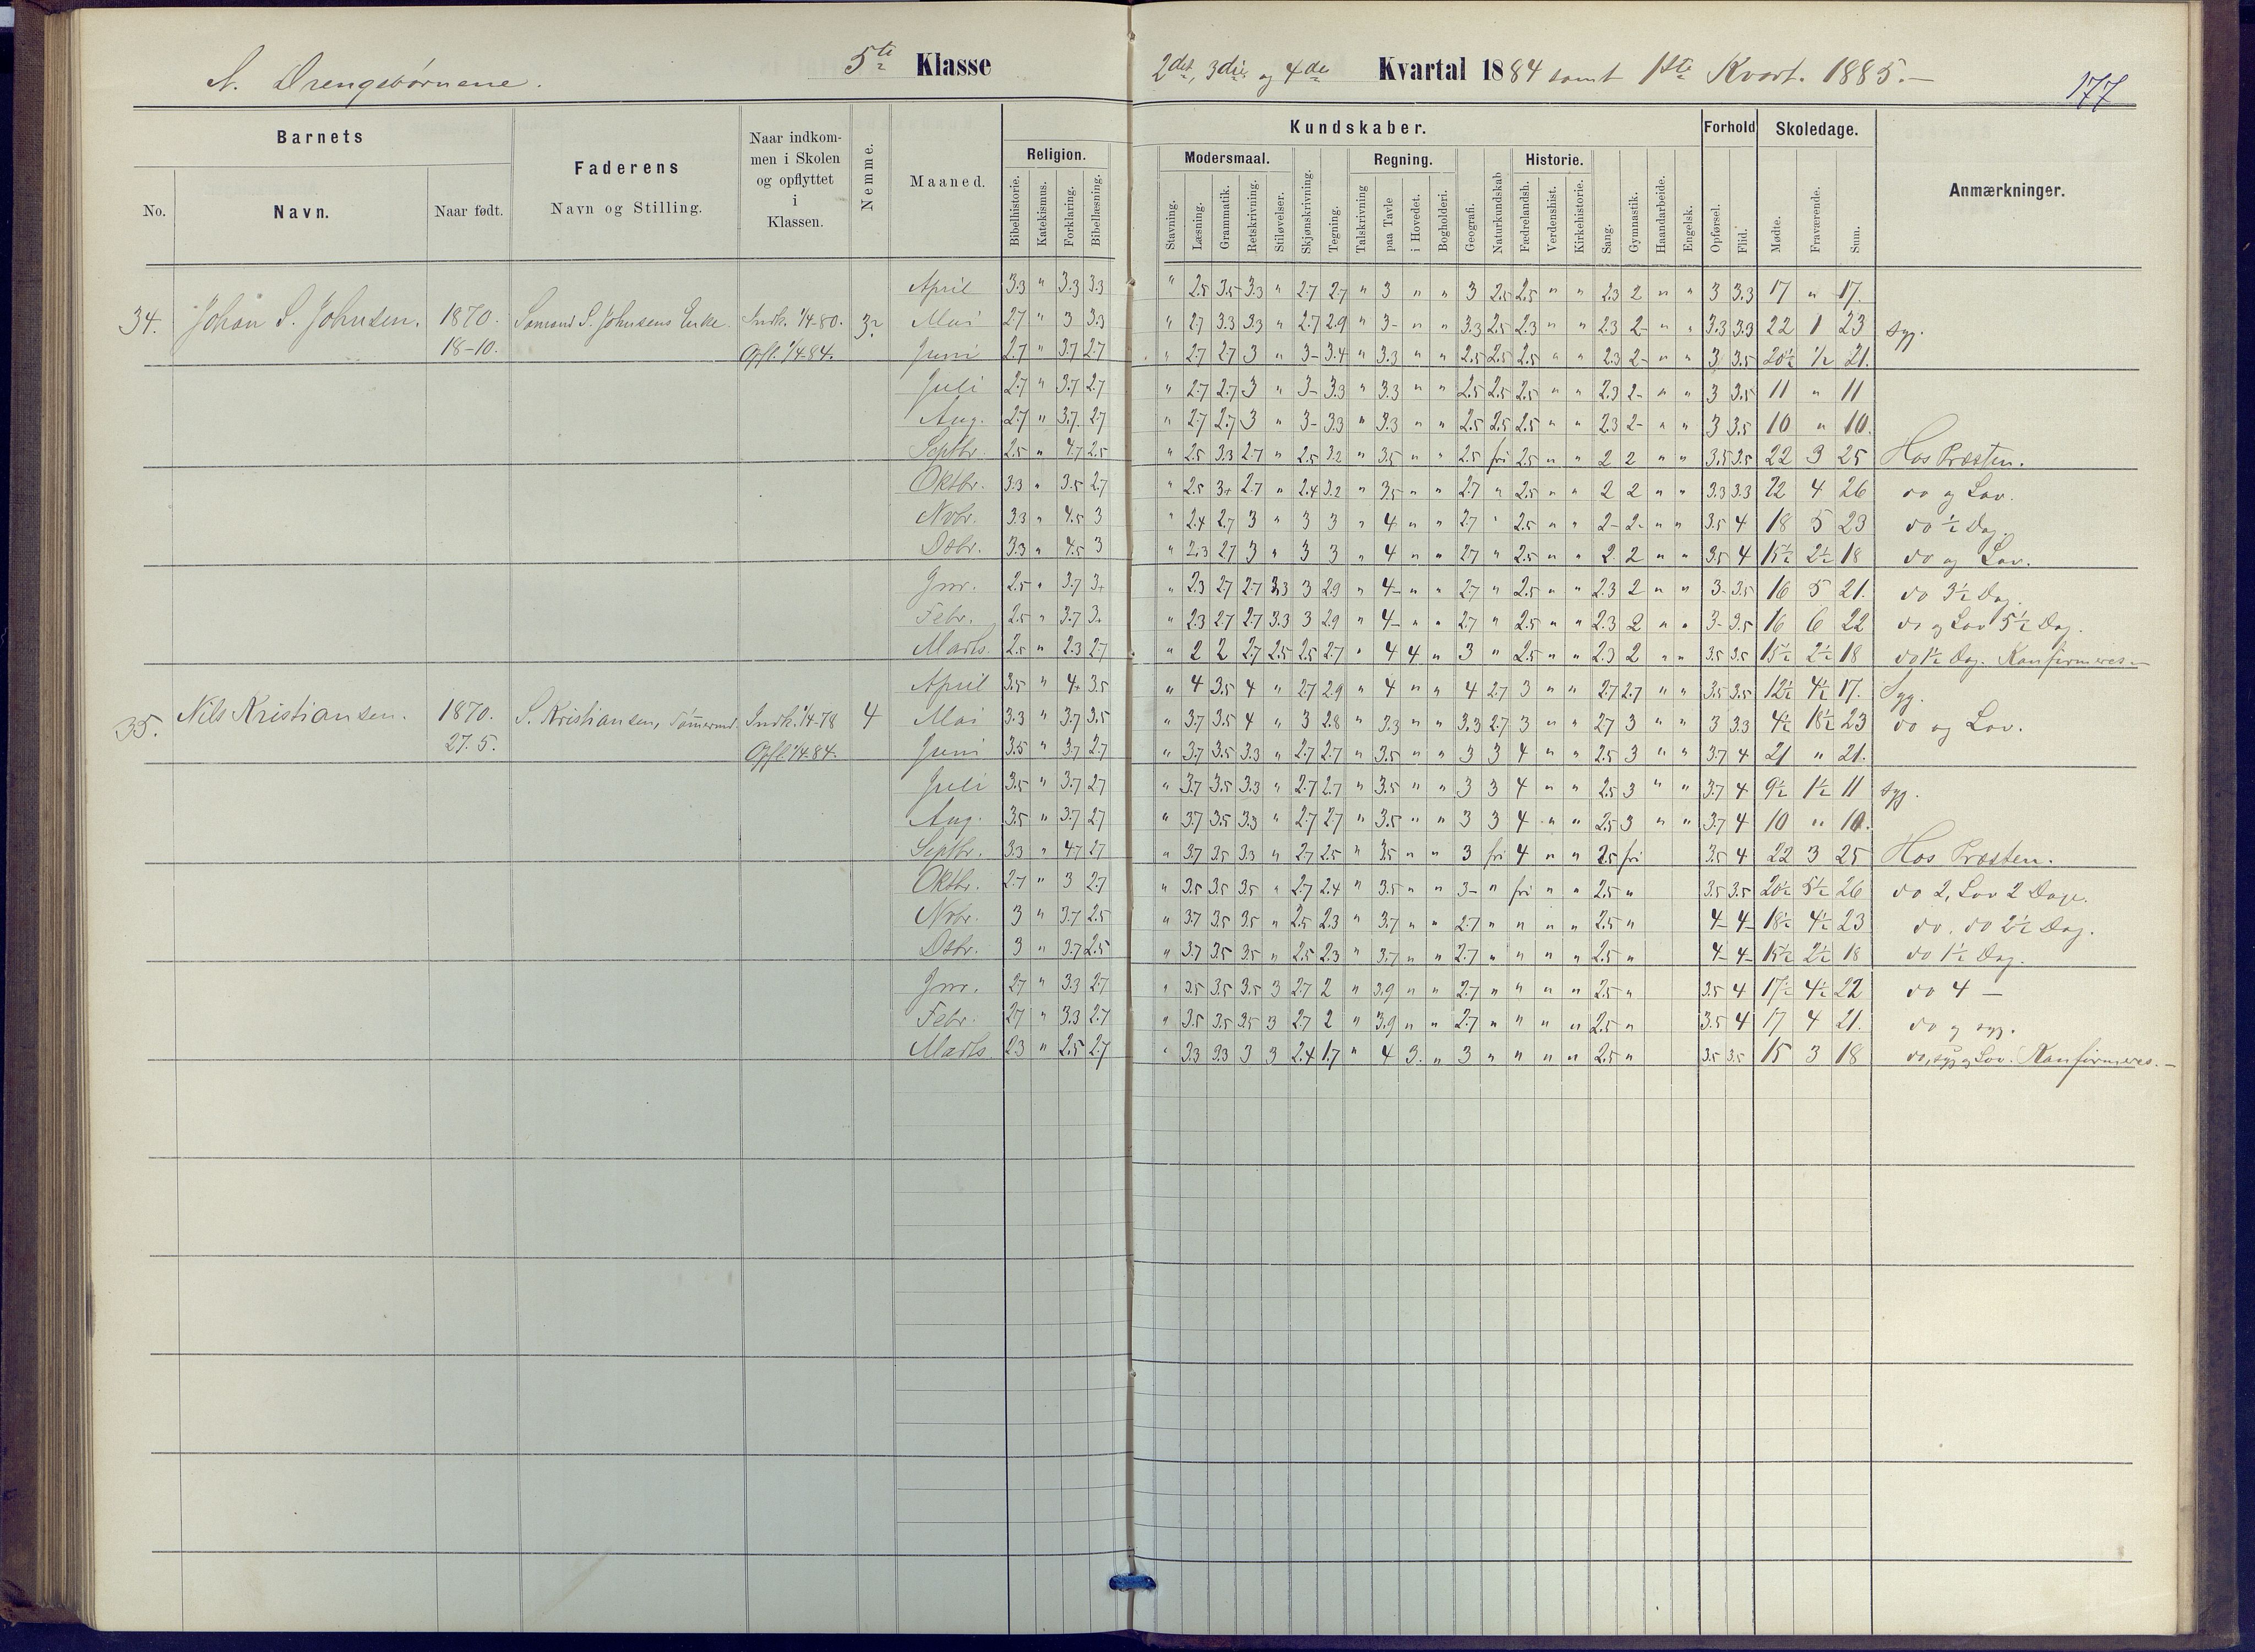 A. Drengebørnene. 5te Klasse 2det, 3die og 4de Kvartal 1884 samt 1ste Kvart. 1885.- 177
Barnets
No. Navn. Naar født.
Faderens
Navn og Stilling.
Naar indkom-
men i Skolen
og opflyttet
i
Klassen.
Nemme.
Maaned.
Kundskaber.
Religion. Modersmaal. Regning. Historie.
Bibelhistorie. Katekismus. Forklaring. Bibellæsning. Stavning. Læsning. Grammatik. Retskrivning. Stiløvelser. Skjønskrivning. Tegning. Talskrivning paa Tavle i Hovedet. Bogholderi. Geografi. Naturkundskab Fædrelandsh. Verdenshist. Kirkehistorie. Sang. Gymnastik. Haandarbeide. Engelsk.
Forhold
Opførsel. Flid.
Skoledage.
Mødte. Fraværende. Sum.
Anmærkninger.
April 3.3 " 3.3 3.3 " 2.5 3.5 3.3 " 2.7 2.7 " 3 " " 3 2.5 2.5 " " 2.3 2 " " 3 3.3 17 " 17.
34. Johan S. Johnsen. 1870. Samand S. Johnsens Enke. Indk. 1/4-80. 3? Mai 2.7 " 3 3.3 " 2.7 3.3 3.3 " 2.7 2.9 " 3- " " 3.3 2.5 2.3 " " 2.3 2- " " 3.3 3.3 22 1 23 Syg.
18-10. Opfl. 1/4-84. Juni 2.7 " 3.7 2.7 " 2.7 2.7 3 " 3- 3.4 " 3.3 " " 2.5 2.5 2.5 " " 2.3 2- " " 3 3.5 20½ ½ 21.
Juli 2.7 " 3.7 2.7 " 2.7 2.7 3 " 3- 3.3 " 3.3 " " 2.5 2.5 2.5 " " 2.3 2- " " 3 3.5 11 " 11
Aug. 2.7 " 3.7 2.7 " 2.7 2.7 3 " 3- 3.3 " 3.3 " " 2.5 2.5 2.5 " " 2.3 2- " " 3 3.5 10 " 10.
Septbr. 2.5 " 4.7 2.5 " 2.5 3.3 2.7 " 2.5 3.2 " 3.5 " " 2.5 fri 2.5 " " 2 2 " " 3.5 3.5 22 3 25 Hos Præsten.
Oktbr. 3.3 " 3.5 2.7 " 2.5 3+ 2.7 " 2.4 3.2 " 3.5 " " 2.7 " 2.5 " " 2 2 " " 3.3 3.3 22 4 26 do og Lov.
Nvbr. 3.3 " 4.5 3 " 2.4 2.7 3 " 3 3 " 4 " " 2.7 " 2.5 " " 2- 2- " " 3.5 4 18 5 23 do ½ Dag.
Dsbr. 3.3 " 4.5 3 " 2.3 2.7 3 " 3 3 " 4 " " 2.7 " 2.5 " " 2 2 " " 3.5 4 15½ 2½ 18 do og Lov.
Jnr. 2.5 " 3.7 3+ " 2.3 2.7 2.7 3.3 3 2.9 " 4- " " 2.7 " 2.5 " " 2.3 2 " " 3- 3.5 16 5 21. do 3½ Dag.
Febr. 2.5 " 3.7 3+ " 2.3 2.7 2.7 3.3 3 2.9 " 4- " " 2.7 " 2.5 " " 2.3 2 " " 3- 3.5 16 6 22 do og Lov 5½ Dag.
Marts. 2.5 " 2.3 2.7 " 2 2 2.7 2.5 2.5 2.7 " 4 4 " 3 " 2.5 " " 2.3 2 " " 3.5 3.5 15½ 2½ 18 do 1½ Dag. Konfirmeres.-
April 3.5 " 4+ 3.5 " 4 3.5 4 " 2.7 2.9 " 4 " " 4 2.7 3 " " 2.7 2.7 " " 3.5 3.5 12½ 4½ 17. Syg.
35. Nils Kristiansen. 1870. S. Kristiansen, Tømmermd. Indk. 1/4-78 4 Mai 3.3 " 3.7 3.5 " 3.7 3.5 4 " 3 2.8 " 3.3 " " 3.3 2.7 3 " " 2.7 3 " " 3 3.3 4½ 18½ 23 do og Lov.
27.5. Opfl. 1/4-84. Juni 3.5 " 3.7 2.7 " 3.7 3.5 3.3 " 2.7 2.7 " 3.5 " " 3 3 4 " " 2.5 3 " " 3.7 4 21 " 21.
Juli 3.5 " 3.7 2.7 " 3.7 3.5 3.3 " 2.7 2.7 " 3.5 " " 3 3 4 " " 2.5 3 " " 3.7 4 9½ 1½ 11 Syg.
Aug. 3.5 " 3.7 2.7 " 3.7 3.5 3.3 " 2.7 2.7 " 3.5 " " 3 3 4 " " 2.5 3 " " 3.7 4 10 " 10.
Septbr. 3.3 " 4.7 2.7 " 3.7 3.5 3.3 " 2.7 2.5 " 3.5 " " 3 fri 4 " " 2.5 fri 3.5 4 22 3 25 Hos Præsten.
Oktbr. 2.7 " 3 2.7 " 3.5 3.5 3.5 " 2.7 2.4 " 3.5 " " 3- " fri " " 2.5 " 3.5 3.5 20½ 5½ 26 do 2, Lov 2 Dage.
Nvbr. 3 " 3.7 2.5 " 3.7 3.5 3.5 " 2.5 2.3 " 3.7 " " 2.7 " " " " 2.5 " 4- 4- 18½ 4½ 23 do. do 2½ Dag.
Dsbr. 3 " 3.7 2.5 " 3.7 3.5 3.5 " 2.5 2.3 " 3.7 " " 2.7 " " " " 2.5 " 4- 4- 15½ 2½ 18 do 1½ Dag.
Jnr. 2.7 " 3.3 2.7 " 3.5 3.5 3.5 3 2.7 2 " 3.9 " " 2.7 " " " " 2.5 " 3.5 4 17½ 4½ 22 do 4 -
Febr. 2.7 " 3.3 2.7 " 3.5 3.5 3.5 3 2.7 2 " 3.9 " " 2.7 " " " " 2.5 " 3.5 4 17 4 21. do og syg.
Marts. 2.3 " 2.5 2.7 " 3.3 3.3 3 3 2.4 1.7 " 4 3. " 3 " " " " 2.5 " 3.5 3.5 15 3 18 do, syg og Lov. Konfirmeres.-